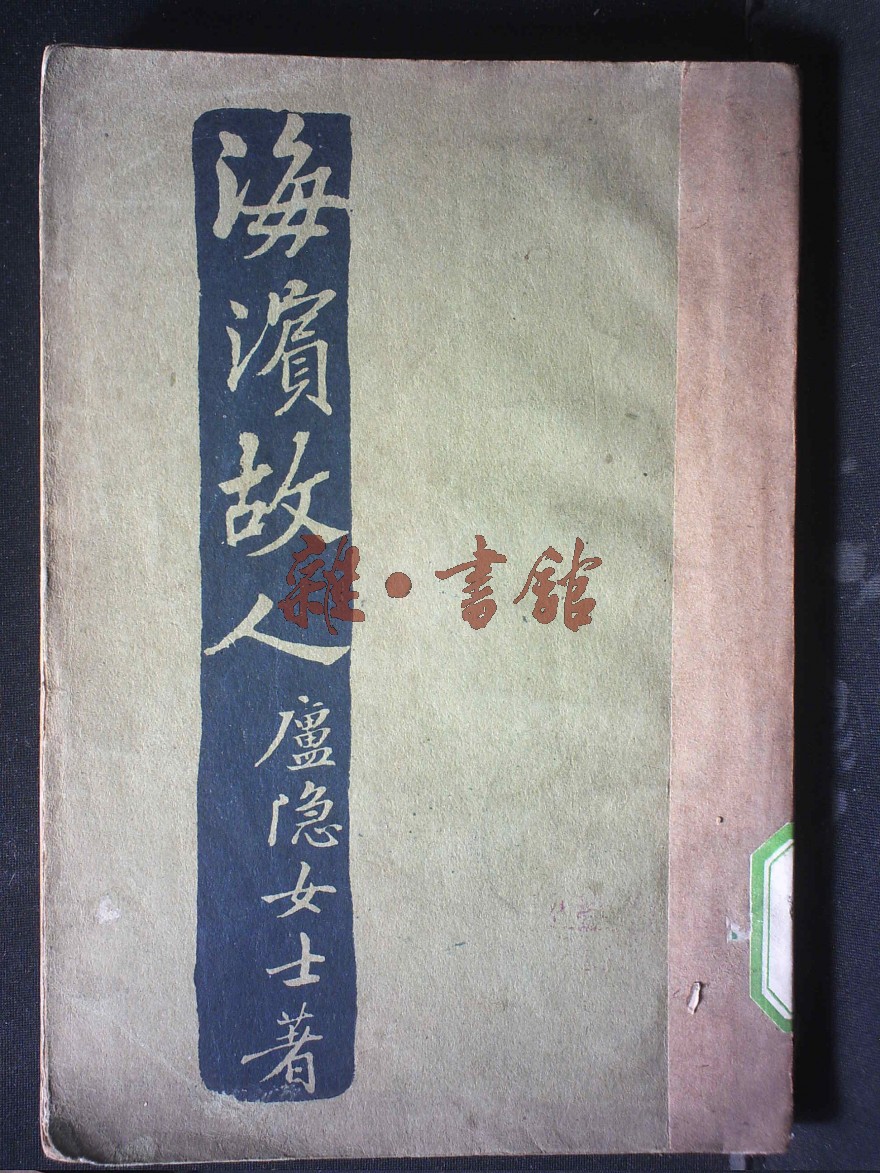 海濵故人
廬隐女士著
雜・書館